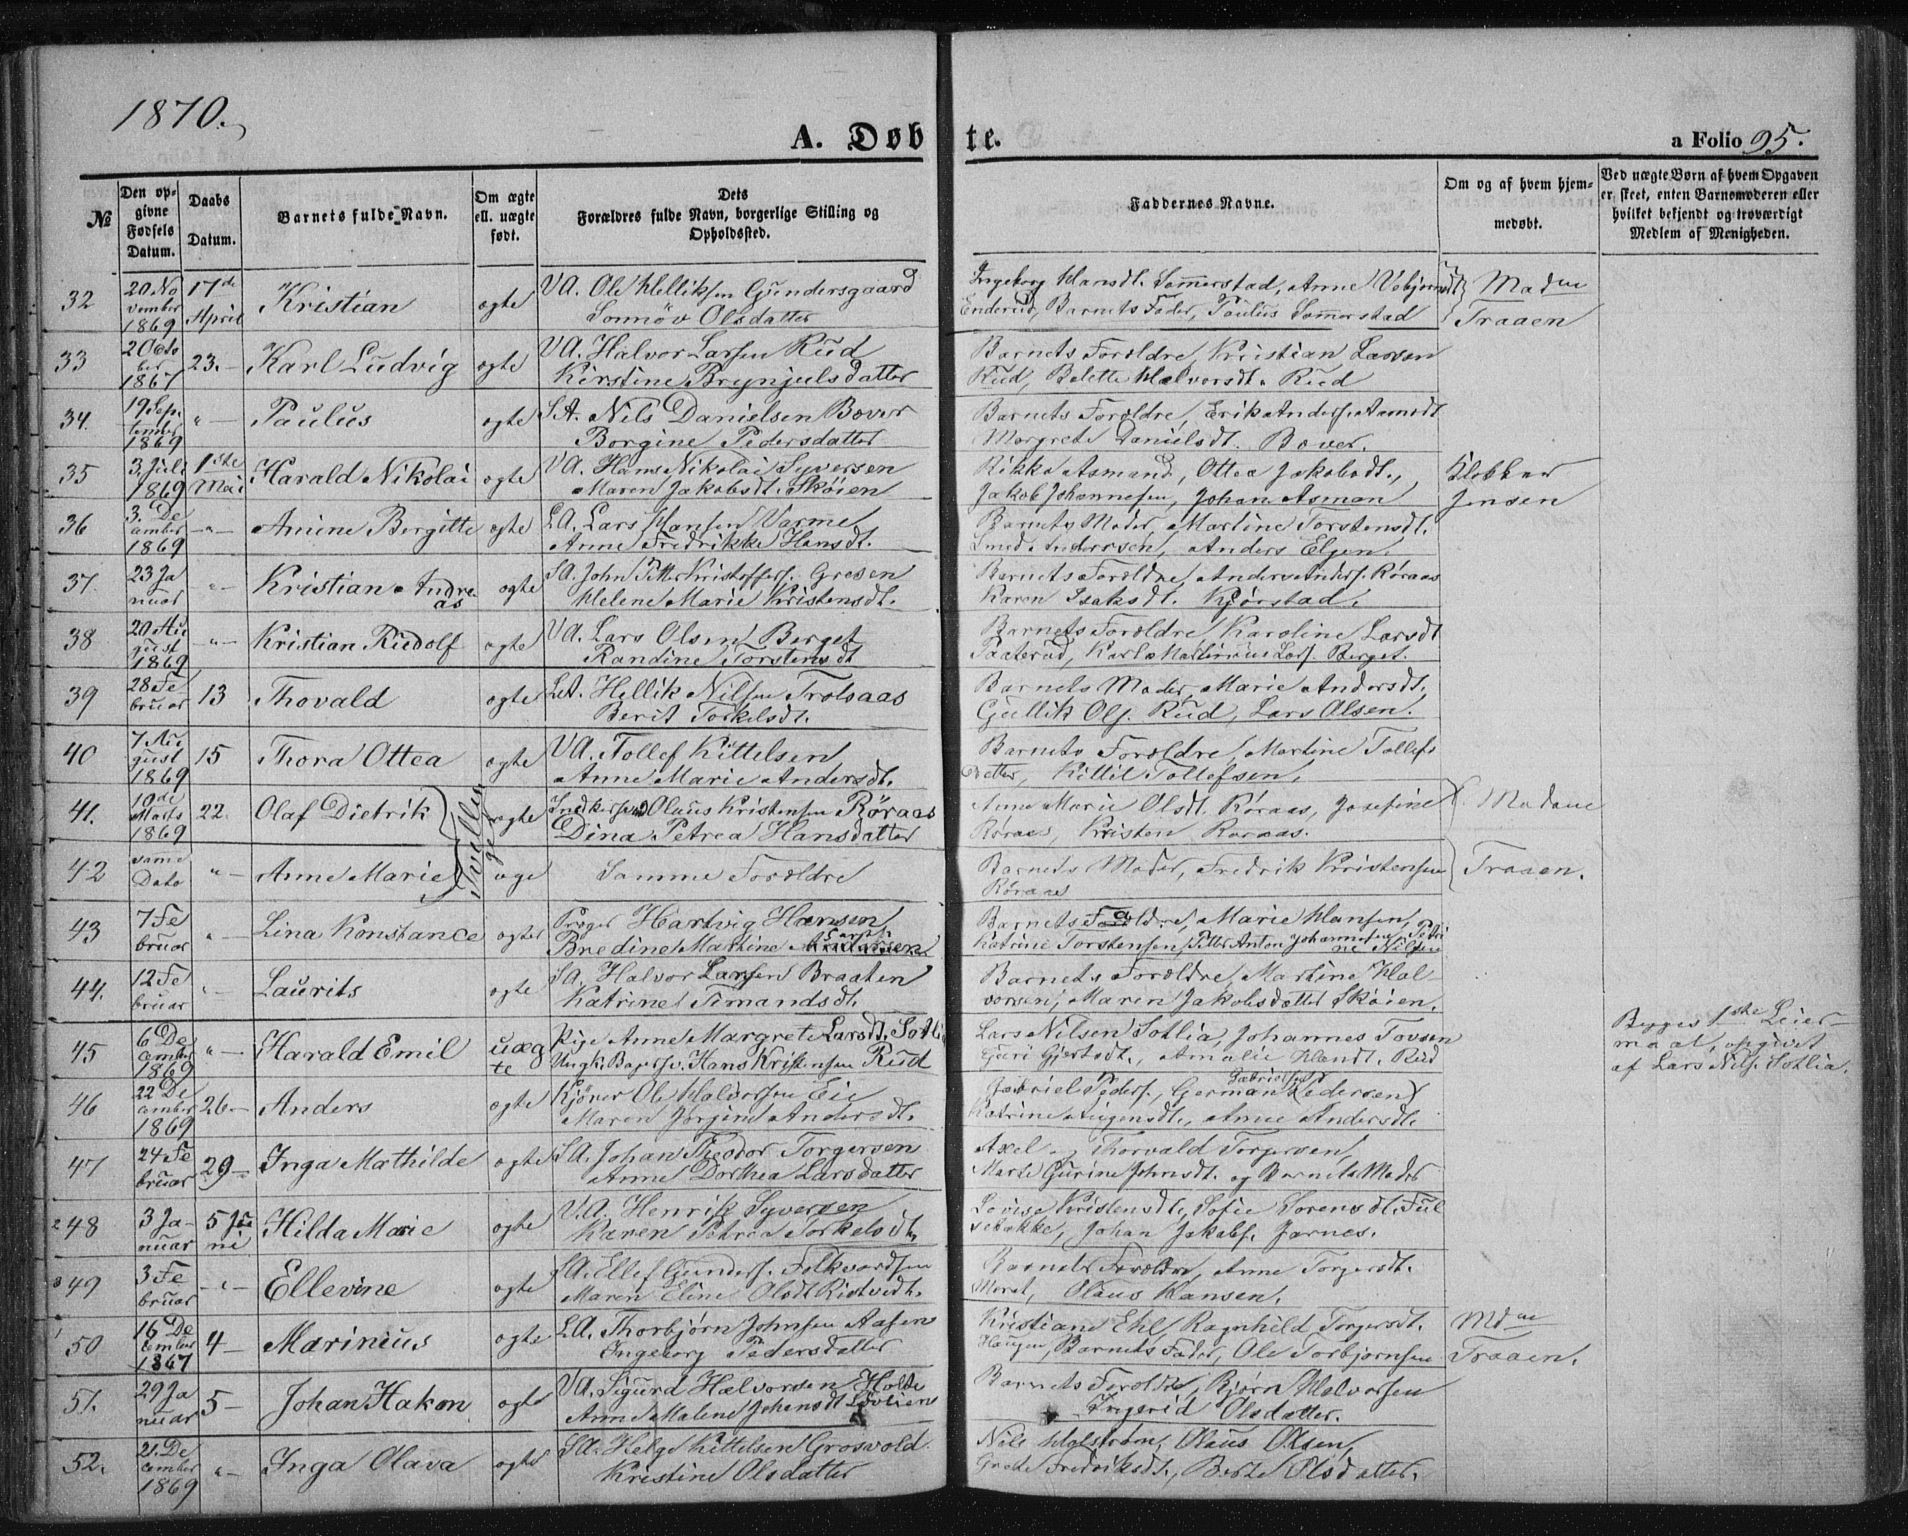 1870.
A. Døbte.
a Folio 95.
№
Den opgivne Fødsels Datum.
Daabs Datum.
Barnets fulde Navn.
Om ægte ell. uægte født.
Dets Forældres fulde Navn, borgerlige Stilling og Opholdssted.
Faddernes Navne.
Om og af hvem hjemmedøbt.
Ved uægte Børn af hvem Opgaven er skeet, enten Barnemoderen eller hvilket bekjendt og troværdigt Medlem af Menigheden.
32 20 November 1869 17de April Kristian ægte VA. Ole Helliksen Gundersgaard
Sønnøv Olsdatter
Ingeborg Hansdt. Sommerstad, Anne
Enderud, Barnets Fader, Paulus Sommerstad
Madm
Traaen
33 2 October 1867 23.- Karl Ludvig ægte VA. Halvor Larsen Rud
Kirstine Brynjulsdatter
Barnets Forældre, Kristian Larsen
Rud, Belette Halvorsdt. Rud
34. 19 September 1869 "- Paulus ægte SA. Nils Danielsen Bover
Borgine Pedersdatter
Barnets Forældre, Erik Anders.
Margrete Danielsdt. Bover.
35 3. Juli 1869 1ste Mai Harald Nikolai ægte VA. Hans Nikolai Syversen
Maren Jakobsdt. Skøien
Rikka Asmand, Ottea Jakobsdt.,
Jakob Johannesen, Johan Asman
Klokker
Jensen
36 3. December 1869 "- Amine Bergitte ægte LA. Lars Hansen Varme
Anne Fredrikke Hansdt.
Barnets Moder, Martine Torstensdt.
Smed Anderssen, Anders Elgen.
37. 23 Januar "- Kristian Andreas ægte SA. John Petter Kristoffers. Gresen
Helene Marie Kristensdt.
Barnets Forældre, Anders Anders. Røraas
Karen Isaksdt. Kjørstad.
38 20 August 1869 "- Kristian Rudolf ægte VA. Lars Olsen Berget
Randine Torstensdt
Barnets Forældre, Karoline Larsdt
Paaterud, Karl Lars. Berget.
39 28 Februar 13 Thovald ægte LA. Hellik Nilsen Trolsaas
Berit Torkelsdt.
Barnets Moder, Marie Andersdt,
Gullik Ols. Rud, Lars Olsen.
40 7 August 1869 15 Thora Ottea ægte VA. Tollef Kittelsen
Anne Marie Andersdt.
Barnets Forældre, Martine Tollefsdatter, Kittil Tollefsen.
41. 10de Marts 1869 22. Olaf Dietrik Tvillinger ægte Olaus Kristensen Røraas
Dina Petrea Hansdatter
Anne Marie Olsdt. Røraas, Josefine
Røraas, Kristen Røraas.
Madame
42 samme Dato "- Anne Marie Samme Forældre
Barnets Moder, Fredrik Kristensen
Røraas
Traaen.
43 7 Februar " Lina Konstance ægte Hartvig Hansen
Bredine Martine
Barnets Forældre, Marie Hansen,
Katrine Torstensen, Petter Anton Johannesen, Petrine Nilsen
44. 12 Februar Laurits ægte SA. Halvor Larsen Braaten
Katrine Tomandsdt.
Barnets Forældre, Martine Halvorsen, Maren Jakobsdatter Skøien.
45 6 December 1869 "- Harald Emil uægte Pige Anne Margrete Larsdt. Sotlia
Ungk. Hans Kristensen Rud
Lars Nilsen Sotlia, Johannes Tovsen
Guri Gjertsdt., Amalie Hansdt. Rud
Begges 1ste Leiermaal, opgivet
af Lars Nils. Sotlia.
46 22 December 1869 26- Anders ægte Ole Halvorsen Eie
Maren Jørgine Andersdt.
Gabriel Peders., German Pedersen
Katrine Augensdt., Anne Andersdt.
47 24 Februar 29- Inga Mathilde ægte SA. Johan Theodor Torgersen
Anne Dorthea Larsdatter
Axel Thorvald Torgersen,
Marte Gurine Johnsdt. og Barnets Moder
48 3 Januar 5 Juni Hilda Marie ægte VA. Henrik Syversen
Karen Petrea Torkelsdt.
Lovise Kristensdt., Sofie Sorensdt. Fulsebakke, Johan Jakobs. Jarnes.
49 3 Februar "- Ellevine ægte SA. Ellef Gunders. Folkvordsen
Maren Eline Olsdt Ristvedt.
Barnets Forældre, Anne Torgersdt.
Moret, Olaus Hansen.
50 16 December 1867 4- Marinius ægte LA. Thorbjørn Johnsen Aasen
Ingeborg Pedersdatter
Kristiane Ehl, Ragnhild Torgersdt.
Haugen, Barnets Fader, Ole Torbjørnsen
Mdm
Traaen.
51. 29 Januar 5- Johan Hakon ægte VA. Sigurd Halvorsen Holte
Anne Malene Johansdt Løvlien
Barnets Forældre, Bjørn Halvorsen
Ingerid Olsdatter.
52. 21. December 1869 "- Inga Olava ægte SA. Helge Kittelsen Grosvold
Kristine Olsdatter
Nils Holstrøm, Olaus Olsen,
Grete Fredriksdt., Berte Olsdatter.